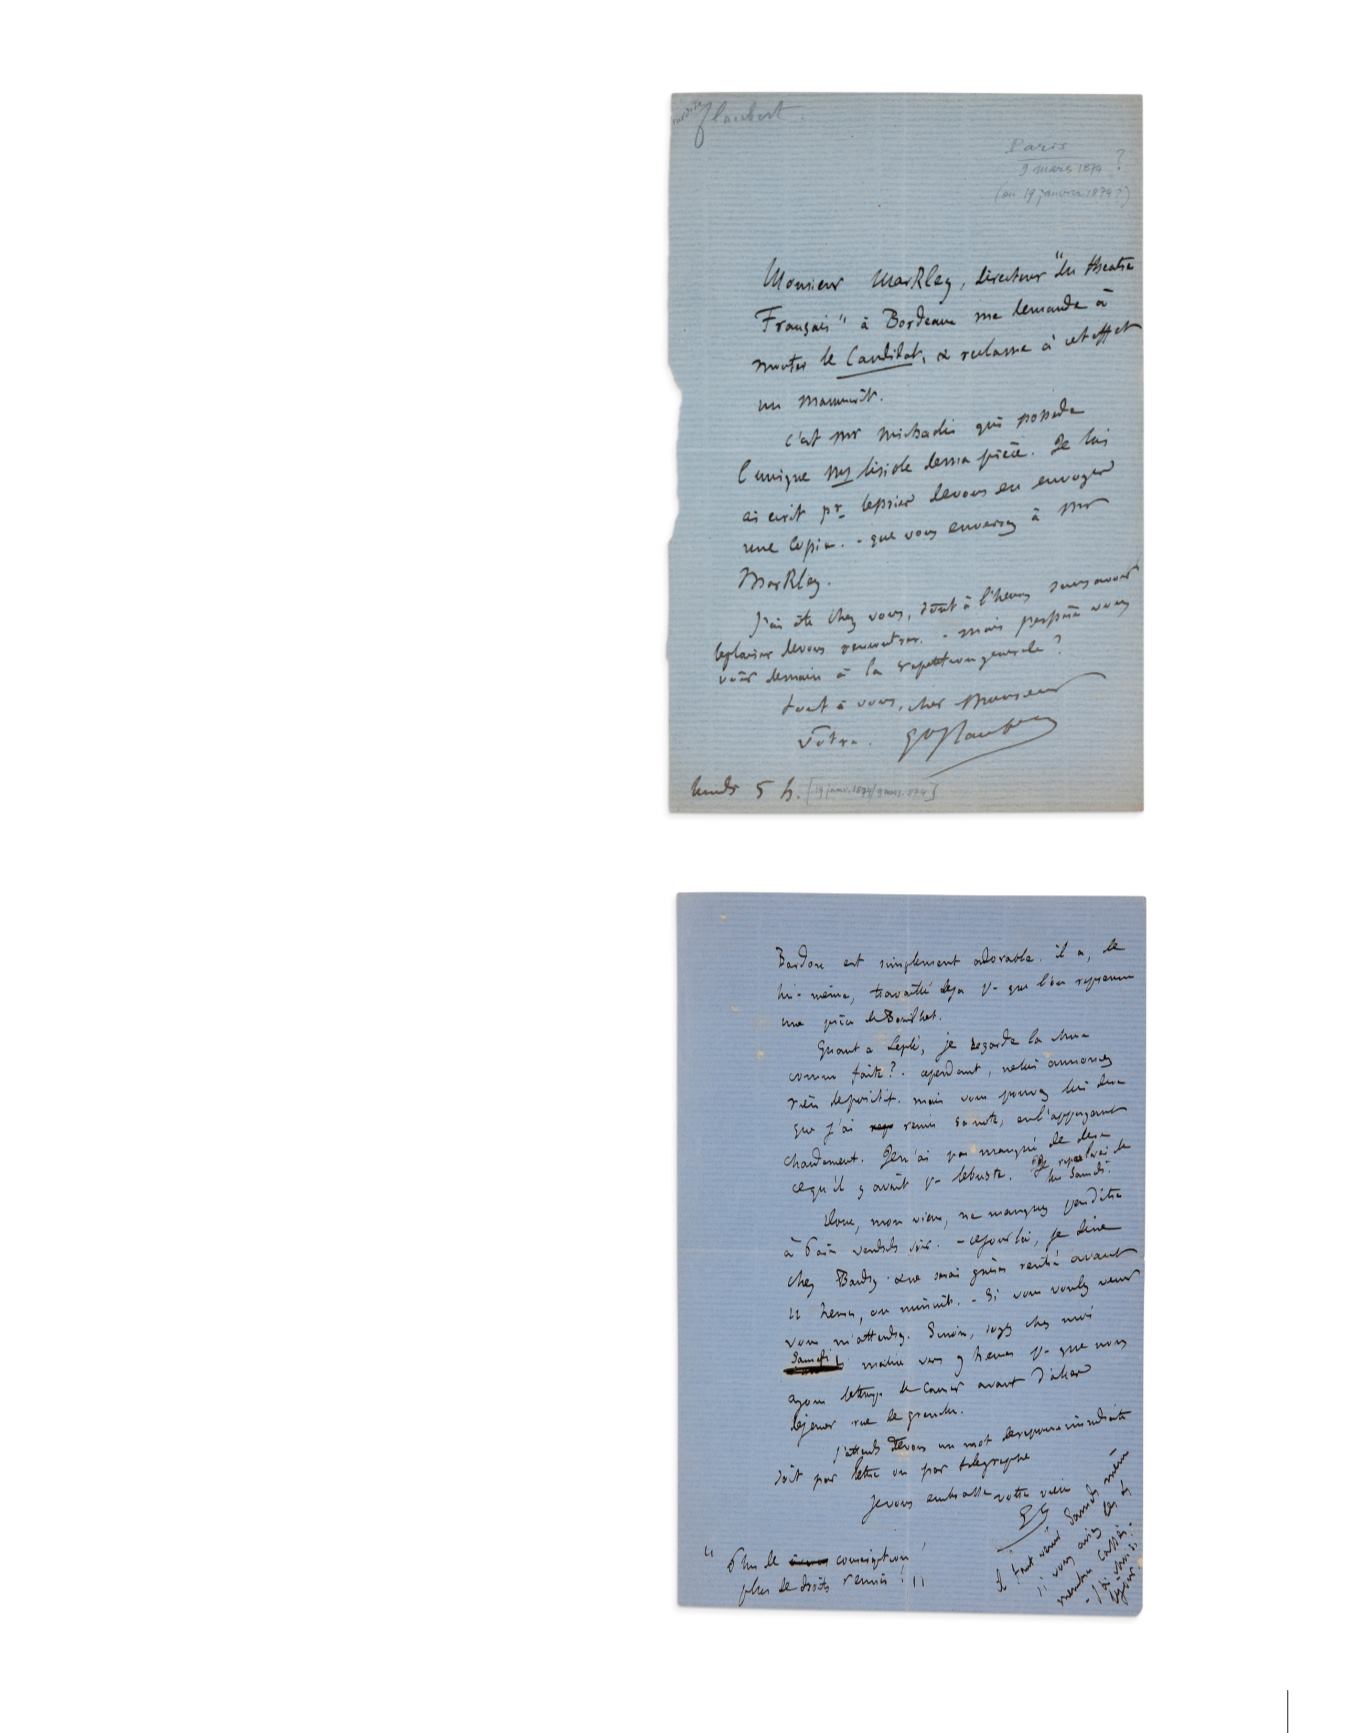 Flaubert.
Paris
9 mars 1874 ?
(ou 19 janvier 1874 ?)
Monsieur Markley, directeur "du theatre
Français" à Bordeaux me demande à
monter le Candidat, & reclame à cet effet
un manuscrit.
C'est mr Michaelis qui possede
l'unique ms lisible de ma pièce. Je lui
ai ecrit pr le prier de vous en envoyer
une copie. - que vous enverrez à Mr
Markley.
J'ai été chez vous, tout à l'heure sans avoir
le plaisir de vous rencontrer. - mais j'espère vous
voir demain à la repetition generale ?
tout à vous, cher Monsieur
Votre. Gve Flaubert
lundi 5 h. [19 janv. 1874/9 mars 1874]
est simplement adorable. il a, de
lui-même, travaillé deja pr que l'on reprenne
une pièce de Bouilhet.
Quant à Leplé, je regarde la chose
comme faite ?. cependant, ne lui annoncez
rien de positif. mais vous pouvez lui dire
que j'ai remis sa note, en l'appuyant
chaudement. Je n'ai pas manqué de dire
ce qu'il y avait pr le buste.
Donc, mon vieux, ne manquez pas d'être
à Paris vendredi soir. - ce jour là, je dine
chez & ne serai guère rentré avant
11 heures, ou minuit. - Si vous voulez venir
vous m'attendrez. Sinon, soyez chez moi
Samedi matin vers 9 heures pr que nous
ayons le temps de causer avant d'aller
dejeuner rue de
J'attends de vous un mot de reponse immediate
soit par lettre ou par telegraphe
Je vous embrasse votre vieux
G
" Plus de conscription !
plus de droits reunis ! "
Il faut venir Samedi même
si vous aviez les
membres cassés.